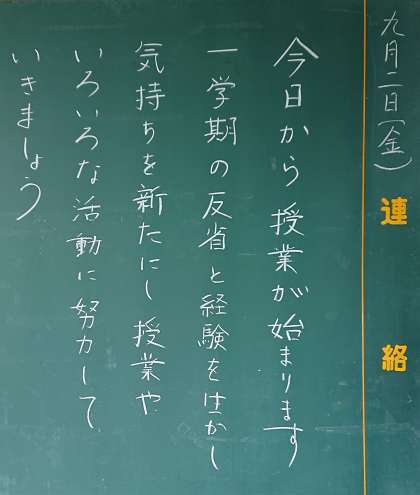 九月二日(金)
連絡
今日から授業が始まります
一学期の反省と経験を生かし
気持ちを新たにし授業や
いろいろな活動に努力して
いきましょう